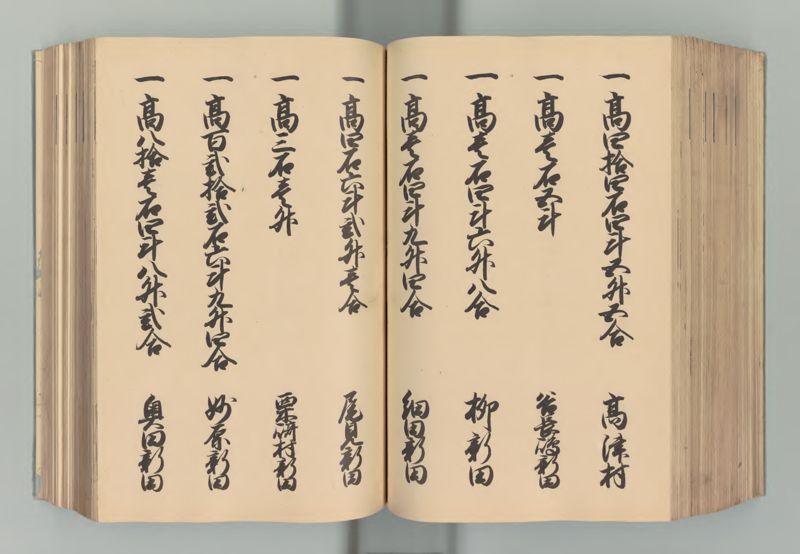 一高四拾四石四斗五升五合 高津村
一高壱石五斗 谷長嶋新田
一高壱石四斗六升八合 柳新田
一高壱石四斗九升四合 細田新田
一高四石六斗弐升壱合 尾見新田
一高三石壱升 新田
一高百弐拾弐石六斗九升四合 妙原新田
一高八拾壱石四斗八升弐合 奥田新田